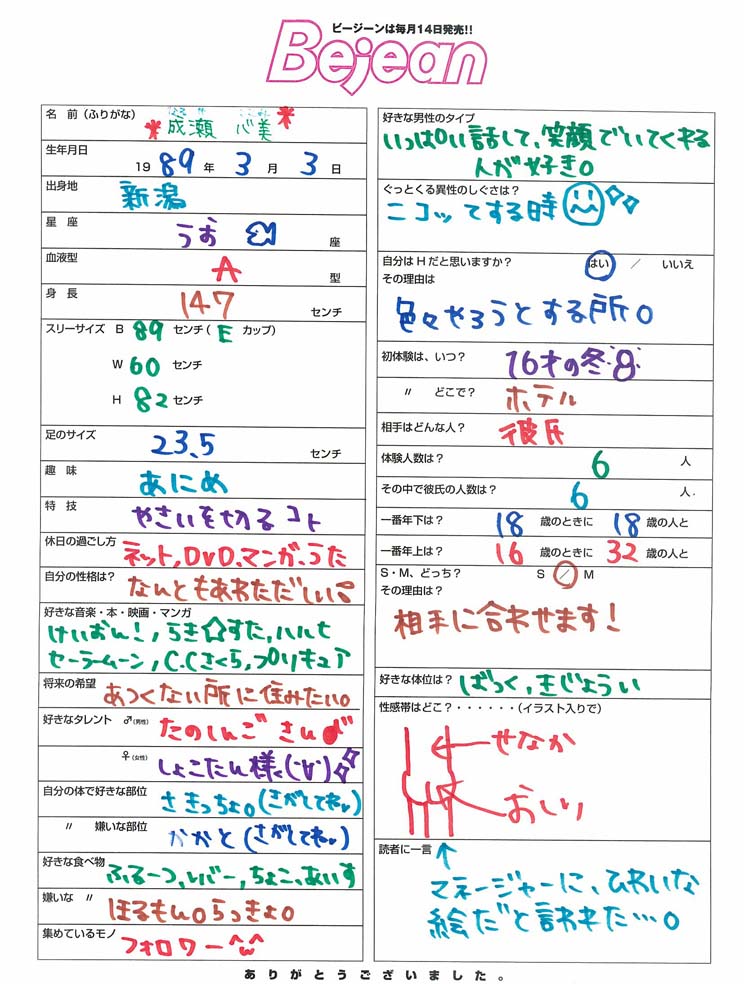 ビージーンは毎月14日発売!!
Bejean
名 前(ふりがな)
成瀬 心美
生年月日
1989年 3月 3日
出身地 新潟
星 座 うお 座
血液型 A 型
身 長 147 センチ
スリーサイズ B 89 センチ( E カップ)
W 60 センチ
H 82 センチ
足のサイズ 23.5 センチ
趣 味 あにめ
特 技 やさいを切るコト
休日の過ごし方 ネット, DVD, マンガ, うた
自分の性格は? なんともあわただしい
好きな音楽・本・映画・マンガ
けいおん!, らき☆すた, ハルヒ
セーラームーン, C.Cさくら, プリキュア
将来の希望 あつくない所に住みたい。
好きなタレント ♂(男性) たのしんご さん
♀(女性) しょこたん様
自分の体で好きな部位 さきっちょ。(さがしてね)
〃 嫌いな部位 かかと(さがしてね)
好きな食べ物 ふるーつ, レバー, ちょこ, あいす
嫌いな 〃 ほるもん。らっきょ。
集めているモノ フォロワー^ω^
好きな男性のタイプ
いっぱい話して、笑顔でいてくれる
人が好き。
ぐっとくる異性のしぐさは?
ニコッてする時
自分はHだと思いますか? はい / いいえ
その理由は
色々やろうとする所。
初体験は、いつ? 16才の冬
〃 どこで? ホテル
相手はどんな人? 彼氏
体験人数は? 6 人
その中で彼氏の人数は? 6 人.
一番年下は? 18 歳のときに 18 歳の人と
一番年上は? 16 歳のときに 32 歳の人と
S・M、どっち? S / M
その理由は?
相手に合わせます!
好きな体位は? ばっく, きじょうい
性感帯はどこ?・・・・・・(イラスト入りで)
せなか
おしり
読者に一言
マネージャーに、ひわいな
絵だと言われた…。
ありがとうございました。